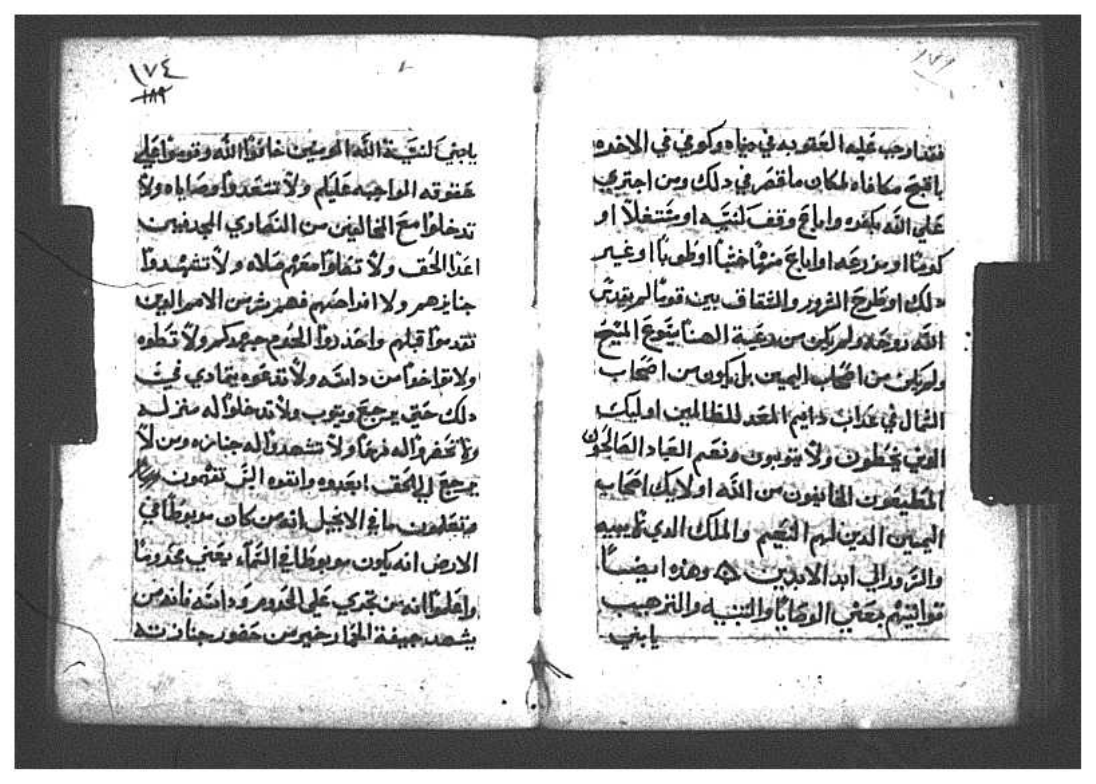 فقد اوجب عليه العقوبه في دنياه وكوفي في الاخره
باقبح مكافاه لمكان ما قصر في ذلك ومن اجتري
على الله بكفره واباع وقف لنيسه او مشتغلا او
كرمًا او مزرعه او اباع منها خشبًا او طوبًا او غير
دلك او طرح الشرور والشقاق بين قومًا لم يقدس
الله روحه ولم يكن من رعية الهنا يسوع المسيح
ولم يكن من اصحاب اليمين بل يكون من اصحاب
الشمال في عذاب دايم المعد للظالمين اوليك
الدين يخطون ولا يتوبون ونعم العباد الصالحون
المطيعون الخايفون من الله اولايك اصحاب
اليمين الدين لهم النعيم والملك الدي لا يبيد
والسرور الي ابد الابدين وهذه ايضًا
قوانينهم بمعني الوصايا والتنبيه والترهيب
يا بني
١٧٤
١٨٩
يا بني لنيسة الله المومنين خافوا الله وقوموا علي
حقوقه الواجبه عليكم ولا تتعدوا وصاياه ولا
تدخلوا مع المخالفين من النصاري المجدفين
اعدا الحق ولا تصلوا معهم صلاه ولا تشهدوا
جنايزهم ولا افراحهم فهم شر من الامم الدين
تقدموا قبلكم واحذروا المحروم جهدكم ولا تعطوه
ولا تواخوا من دانسه ولا تدعوه يتمادي في
دلك حتي يرجع ويتوب ولا تدخلوا له منزله
ولا تحضروا له فرحًا ولا تشهدوا له جنازه ومن لا
يرجع الي الحق ابعدوه وانتم
تعلمون ما في الانجيل انه من كان مربوطًا في
الارض انه يكون مربوطا في السماء يعني محرومًا
واعلموا انه من تجري علي المحروم ودانسه فانه من
يشهد جيفة الحمار خير من حضور جنازته